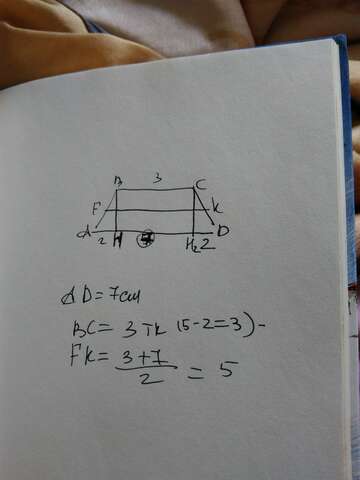 B 3 C
F K
A 2 H 7 H2 2 D
AD = 7см
BC = 3 тк (5-2=3) -
FK = 3+7/2 = 5